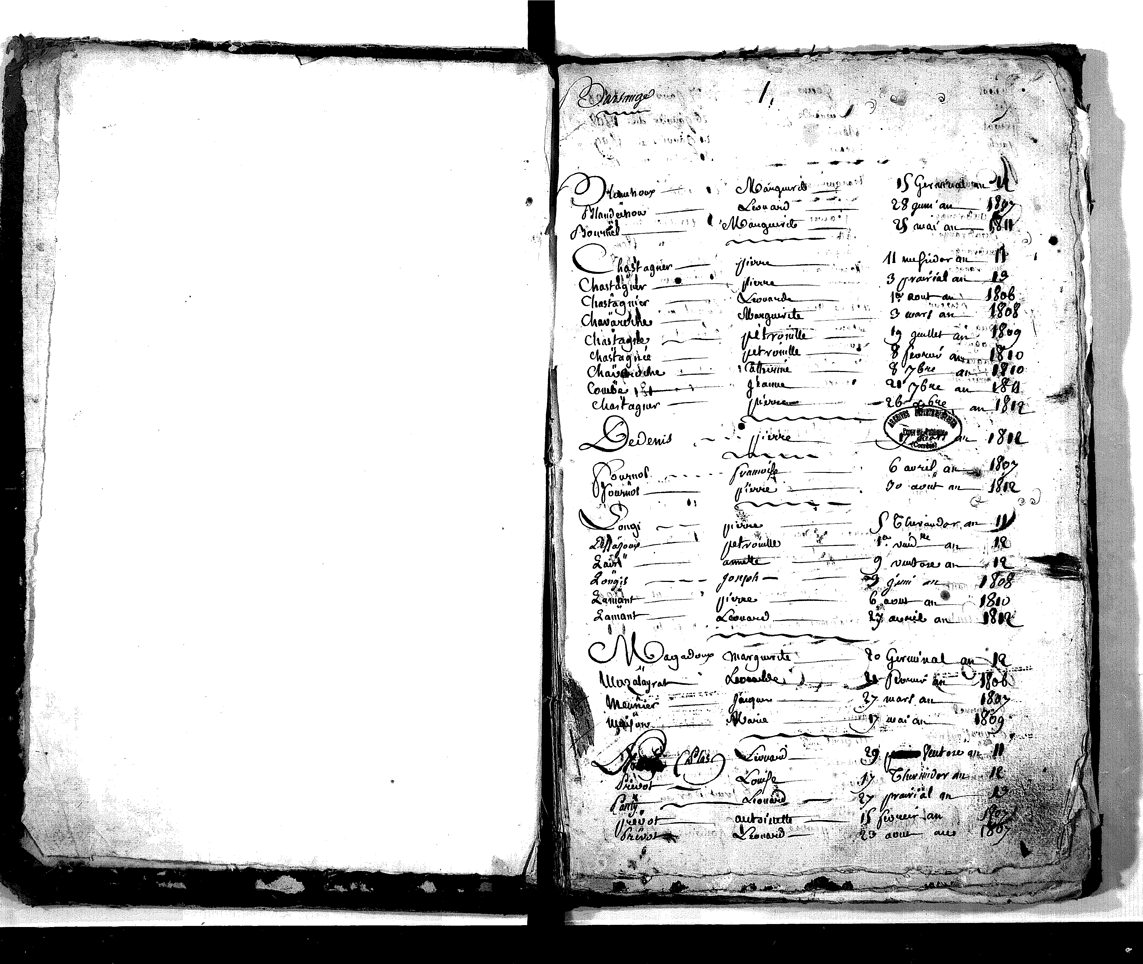 1.
Marguerite 15 Germinal an 11
Léonard 28 juin an 1807
Bournel Marguerite 25 mai an 1811
Chastagner pierre 11 messidor an 11
Chastagner pierre 3 prairial an 13
Chastagnier Léonarde 1er aout an 1806
Chavaroche Marguerite 3 mars an 1808
Chastagné pétronille 19 juillet an 1809
Chastagnée petronille 8 fevrié an 1810
Chavaroche Catherine 8 7bre an 1810
Combe Jeanne 21 7bre an 1811
Chastagner pierre 26 an 1812
Dedenis pierre 17 an 1812
Fournol francoise 6 avril an 1807
Fournol pierre 30 aout an 1812
Longi pierre 5 Thermidor an 11
petronille 1er vend an 12
annette 9 ventose an 12
Longis joseph 9 juin an 1808
Lamant pierre 6 aout an 1810
Lamant Léonard 27 avril an 1812
Magadoux marguerite 20 Germinal an 12
Mazalayrat Léonarde fevrier an 1806
Meunier Jacques 27 mars an 1807
Marie 17 mai an 1809
Plas Léonard 29 Ventose an 11
Prévot Louise 17 Thermidor an 12
Léonard 27 prairial an 13
prévot antoinette 15 fevrier an 1807
Prévot Léonard 23 aout an 1807